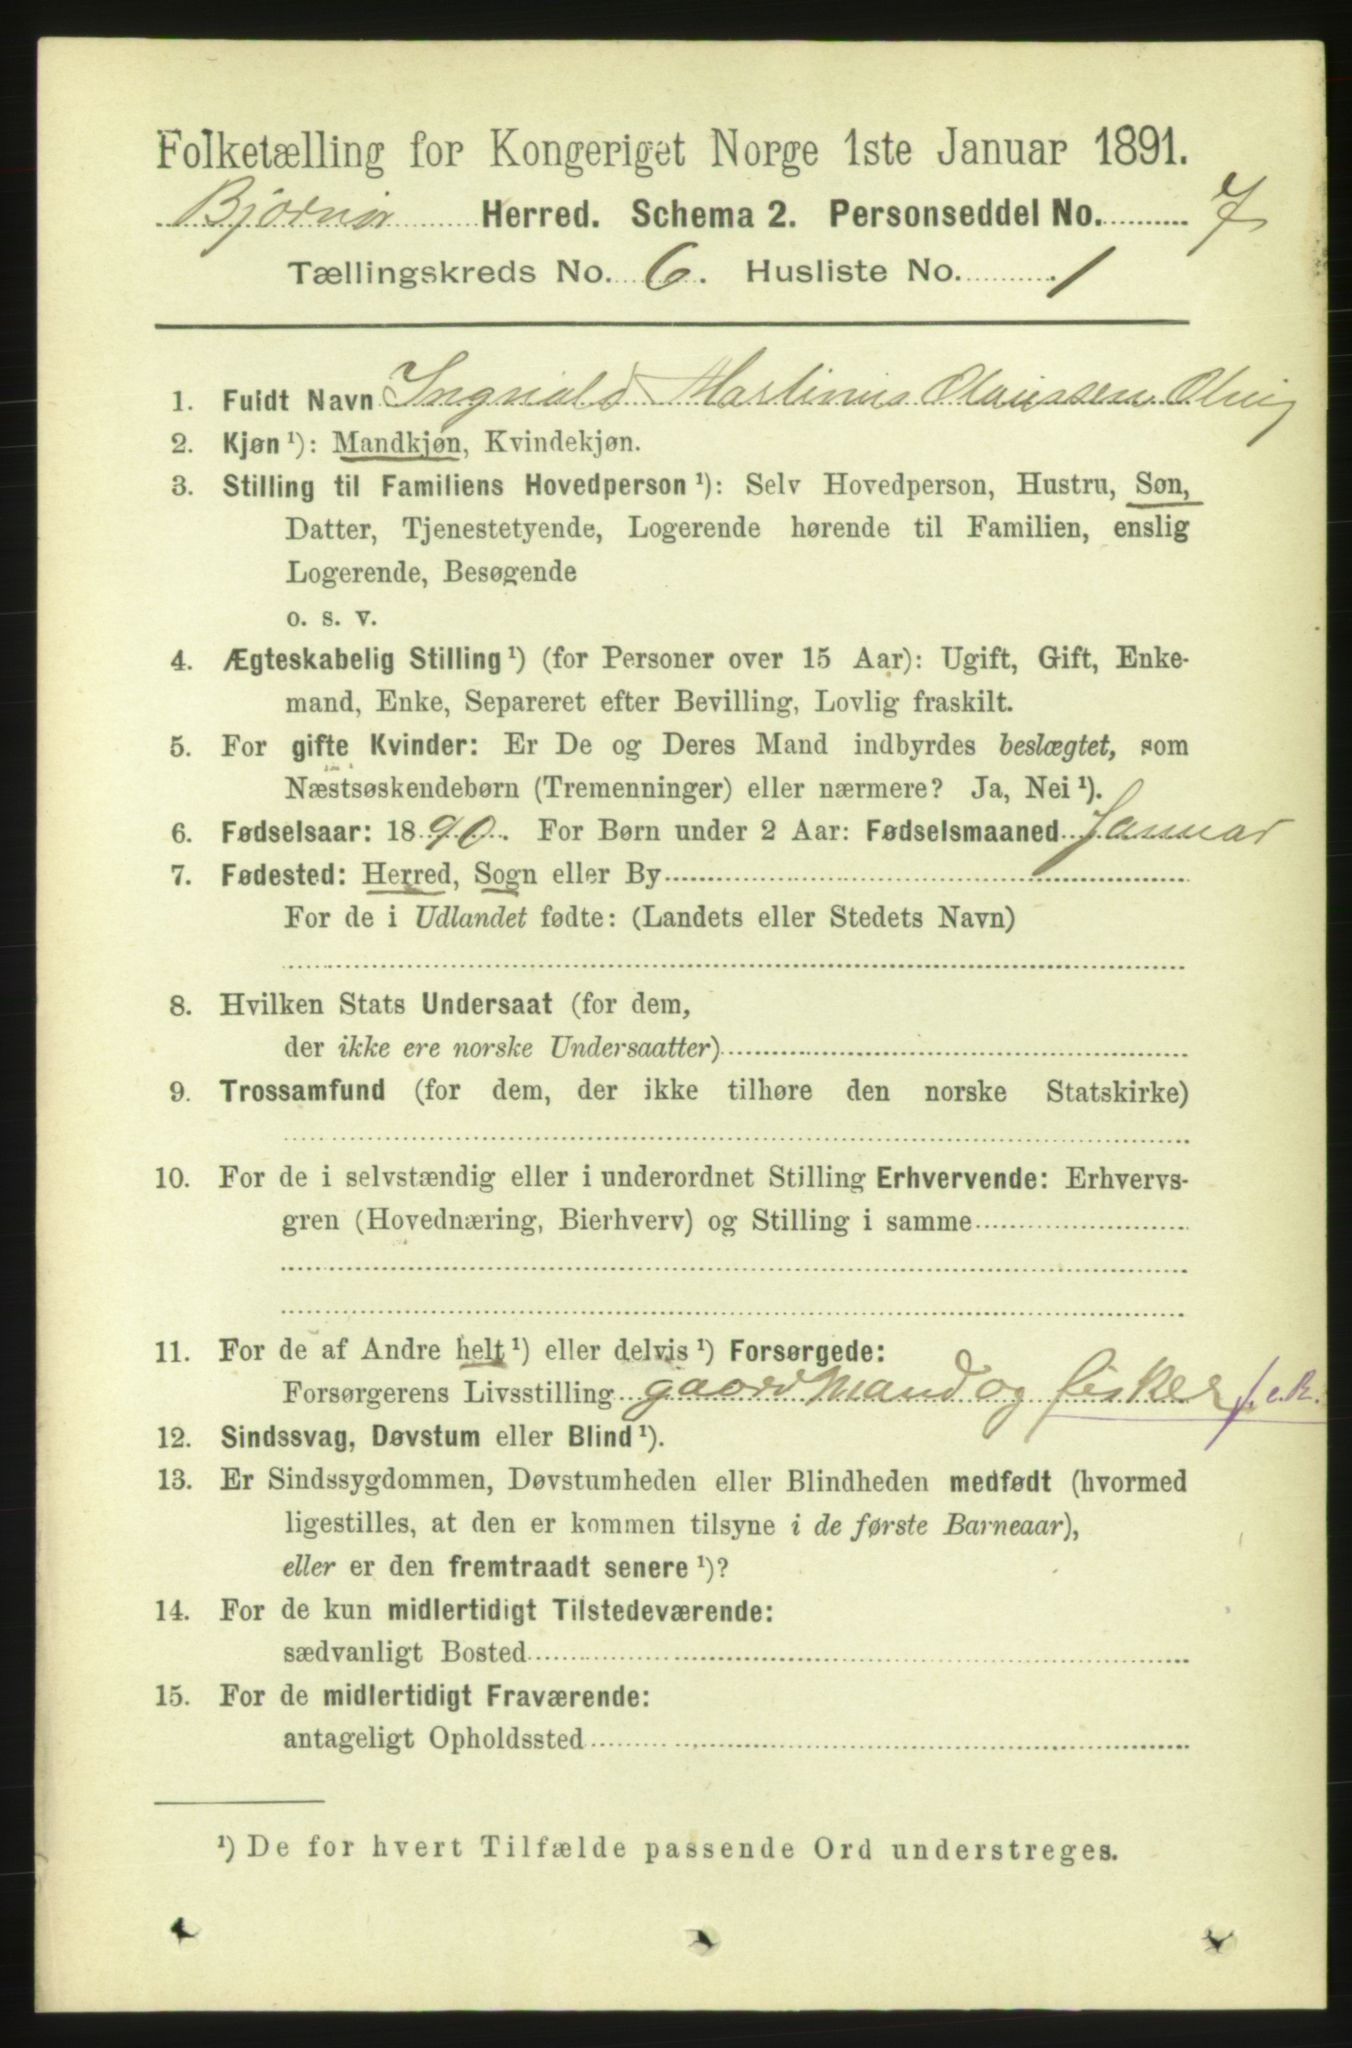 Folketælling for Kongeriget Norge 1ste Januar 1891.
Bjørnør Herred. Schema 2. Personseddel No. 7
Tællingskreds No. 6. Husliste No. 1
1. Fuldt Navn Ingvald Martinus Olaussen
2. Kjøn ¹): Mandkjøn, Kvindekjøn.
3. Stilling til Familiens Hovedperson ¹): Selv Hovedperson, Hustru, Søn,
Datter, Tjenestetyende, Logerende hørende til Familien, enslig
Logerende, Besøgende
o. s. v.
4. Ægteskabelig Stilling ¹) (for Personer over 15 Aar): Ugift, Gift, Enke-
mand, Enke, Separeret efter Bevilling, Lovlig fraskilt.
5. For gifte Kvinder: Er De og Deres Mand indbyrdes beslægtet, som
Næstsøskendebørn (Tremenninger) eller nærmere? Ja, Nei ¹).
6. Fødselsaar: 1890. For Børn under 2 Aar: Fødselsmaaned Januar
7. Fødested: Herred, Sogn eller By
For de i Udlandet fødte: (Landets eller Stedets Navn)
8. Hvilken Stats Undersaat (for dem,
der ikke ere norske Undersaatter)
9. Trossamfund (for dem, der ikke tilhøre den norske Statskirke)
10. For de i selvstændig eller i underordnet Stilling Erhvervende: Erhvervs-
gren (Hovednæring, Bierhverv) og Stilling i samme
11. For de af Andre helt ¹) eller delvis ¹) Forsørgede:
Forsørgerens Livsstilling gaord Mand og fisker f.e.R.
12. Sindssvag, Døvstum eller Blind ¹).
13. Er Sindssygdommen, Døvstumheden eller Blindheden medfødt (hvormed
ligestilles, at den er kommen tilsyne i de første Barneaar),
eller er den fremtraadt senere ¹)?
14. For de kun midlertidigt Tilstedeværende:
sædvanligt Bosted
15. For de midlertidigt Fraværende:
antageligt Opholdssted
¹) De for hvert Tilfælde passende Ord understreges.